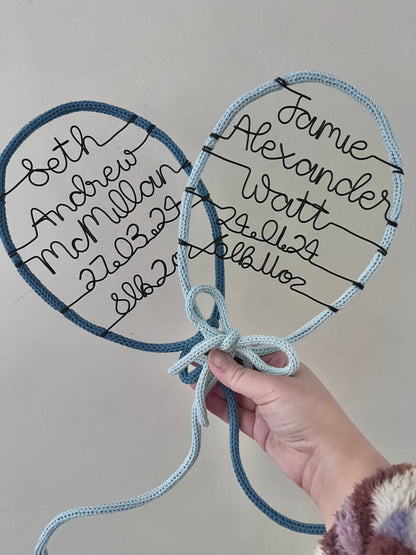 Seth
Andrew
McMillan
27.03.24
8lb2oz
Jamie
Alexander
Watt
24.01.24
6lb11oz